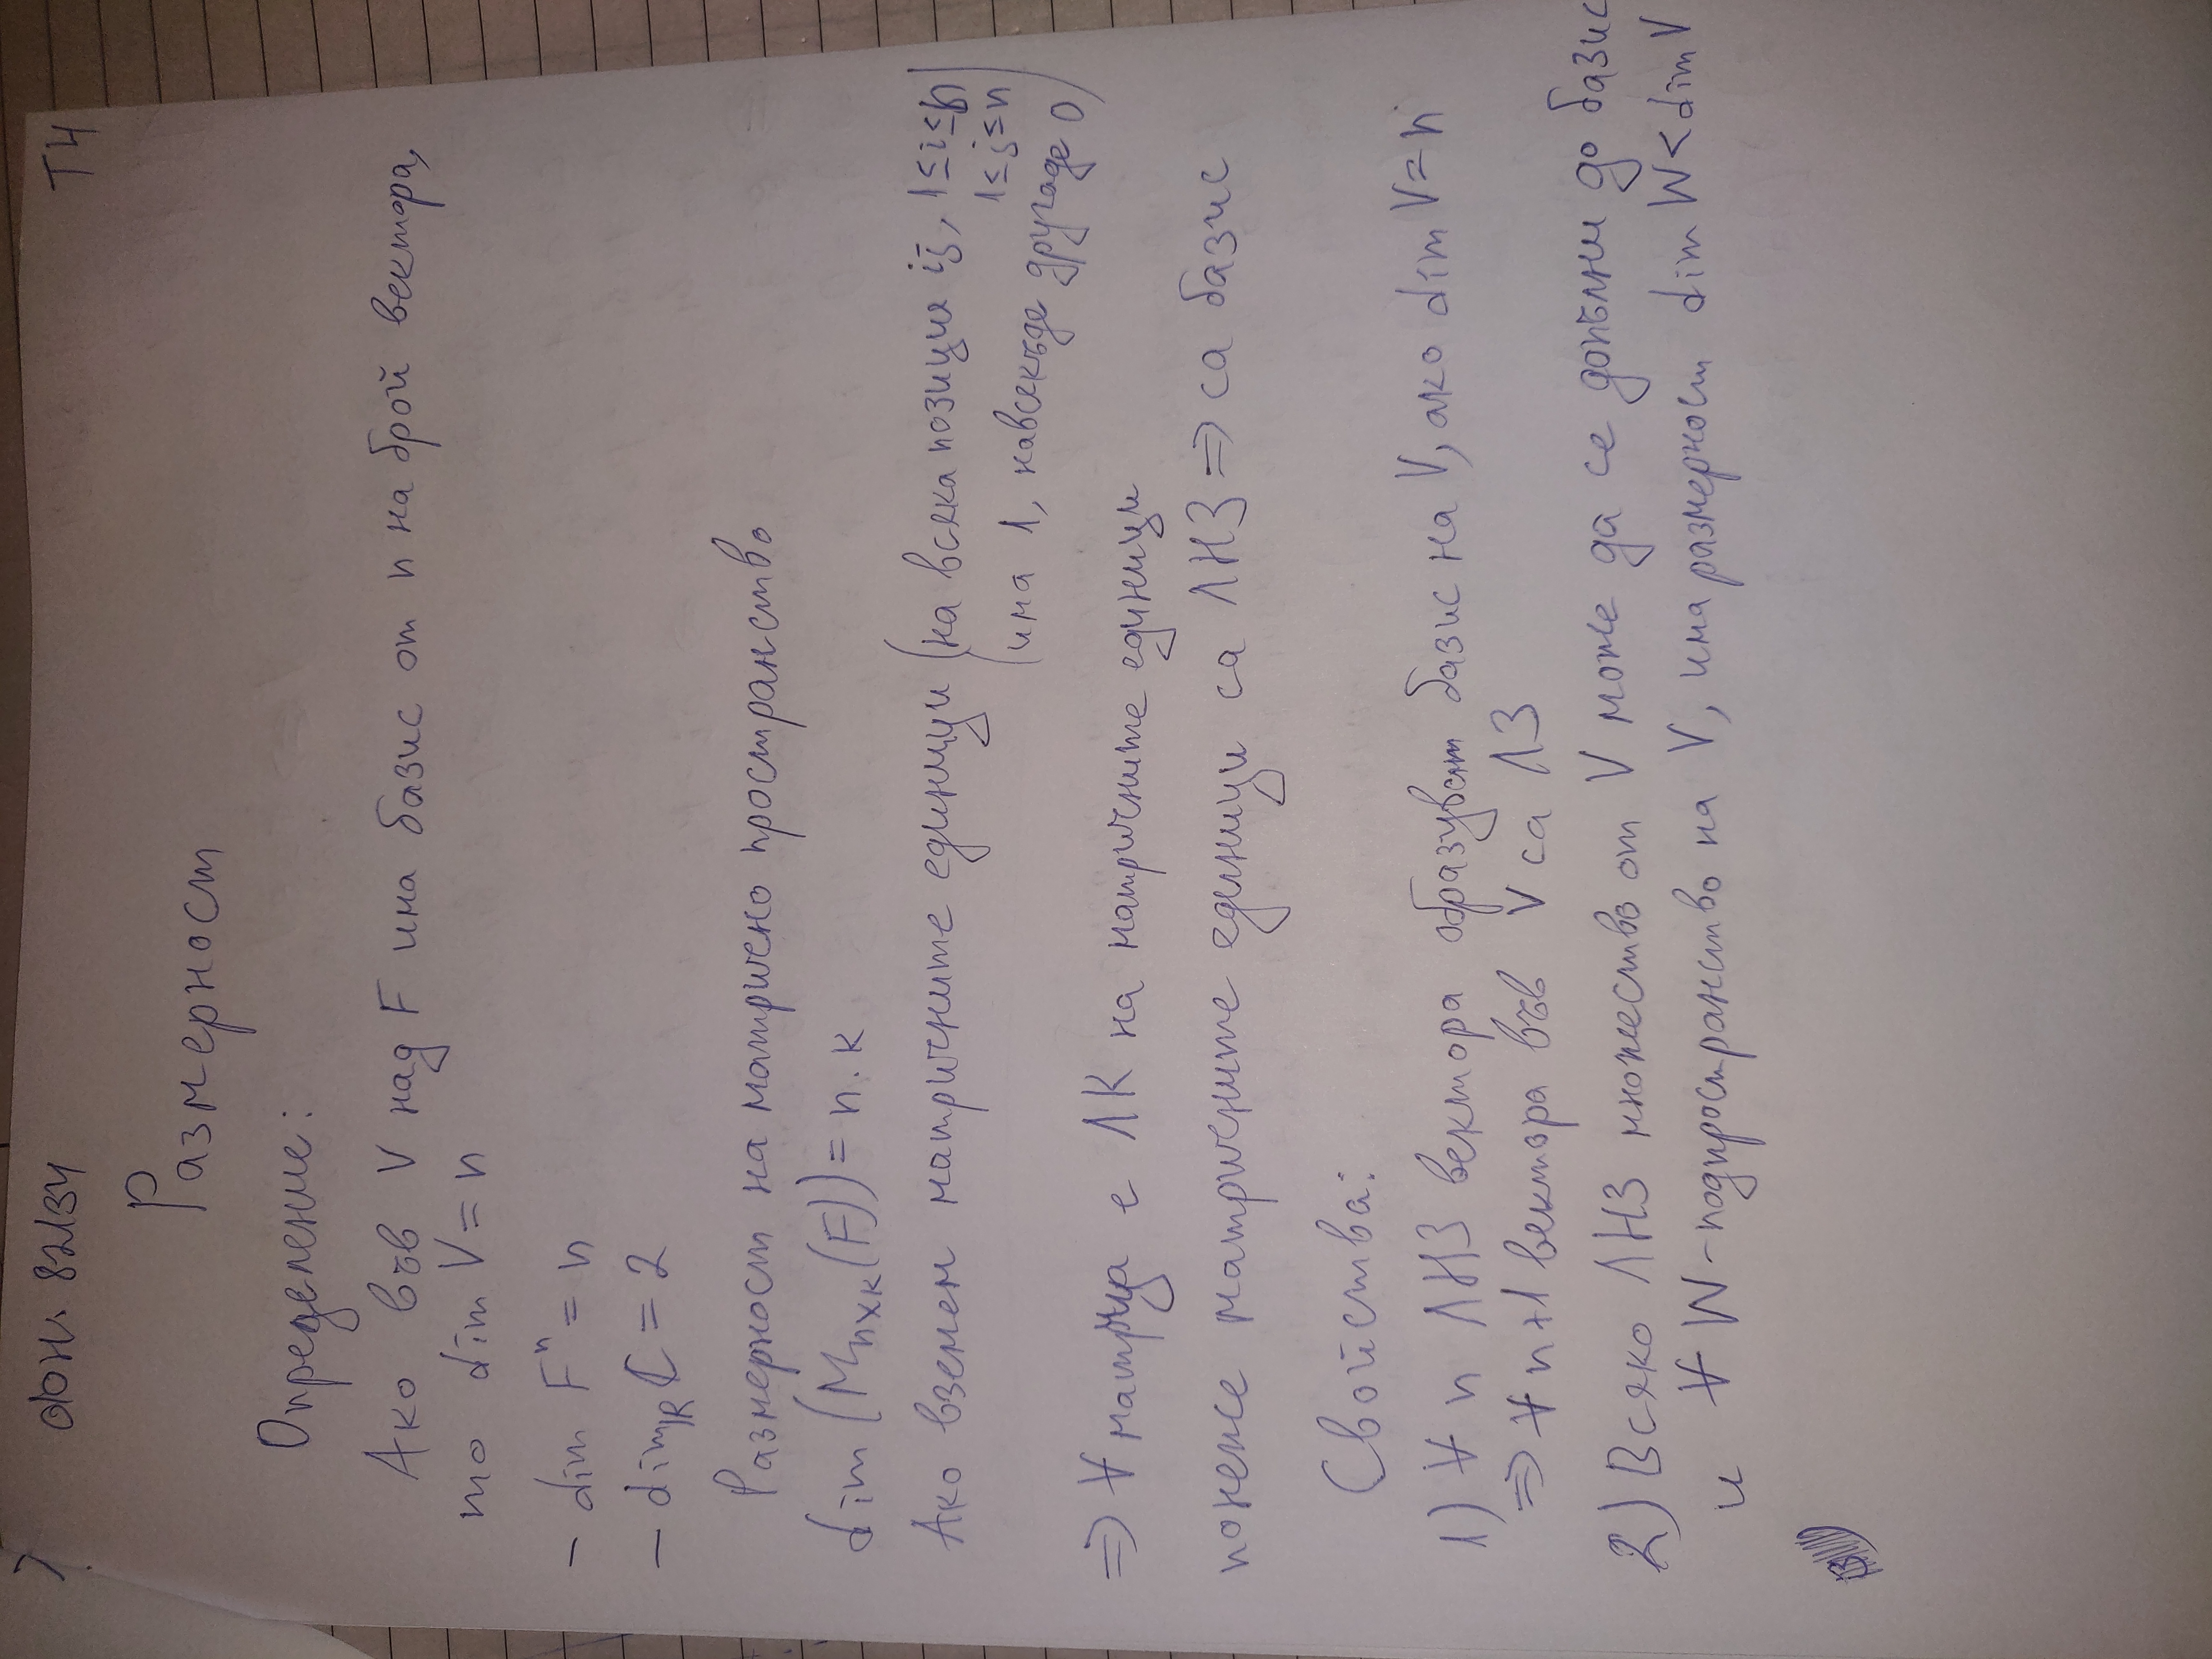 фн. 82134
T4
Размерност
Определение:
Ако във V над F има базис от n на брой вектора,
то dim V = n
- dim Fⁿ = n
- dim_ℝ ℂ = 2
Размерност на матрично пространство
dim (M_{n×k}(F)) = n.k
Ако вземем матричните единици (на всяка позиция ij, 1≤i≤n
1≤j≤n
има 1, навсякъде другаде 0)
=> ∀ матрица е ЛК на матричните единици
понеже матричните единици са ЛНЗ => са базис
Свойства:
1) ∀ n ЛНЗ вектора образуват базис на V, ако dim V = n
=> ∀ n+1 вектора във V са ЛЗ
2) Всяко ЛНЗ множество от V може да се допълни до базис
и ∀ W-подпространство на V, има размерност dim W < dim V